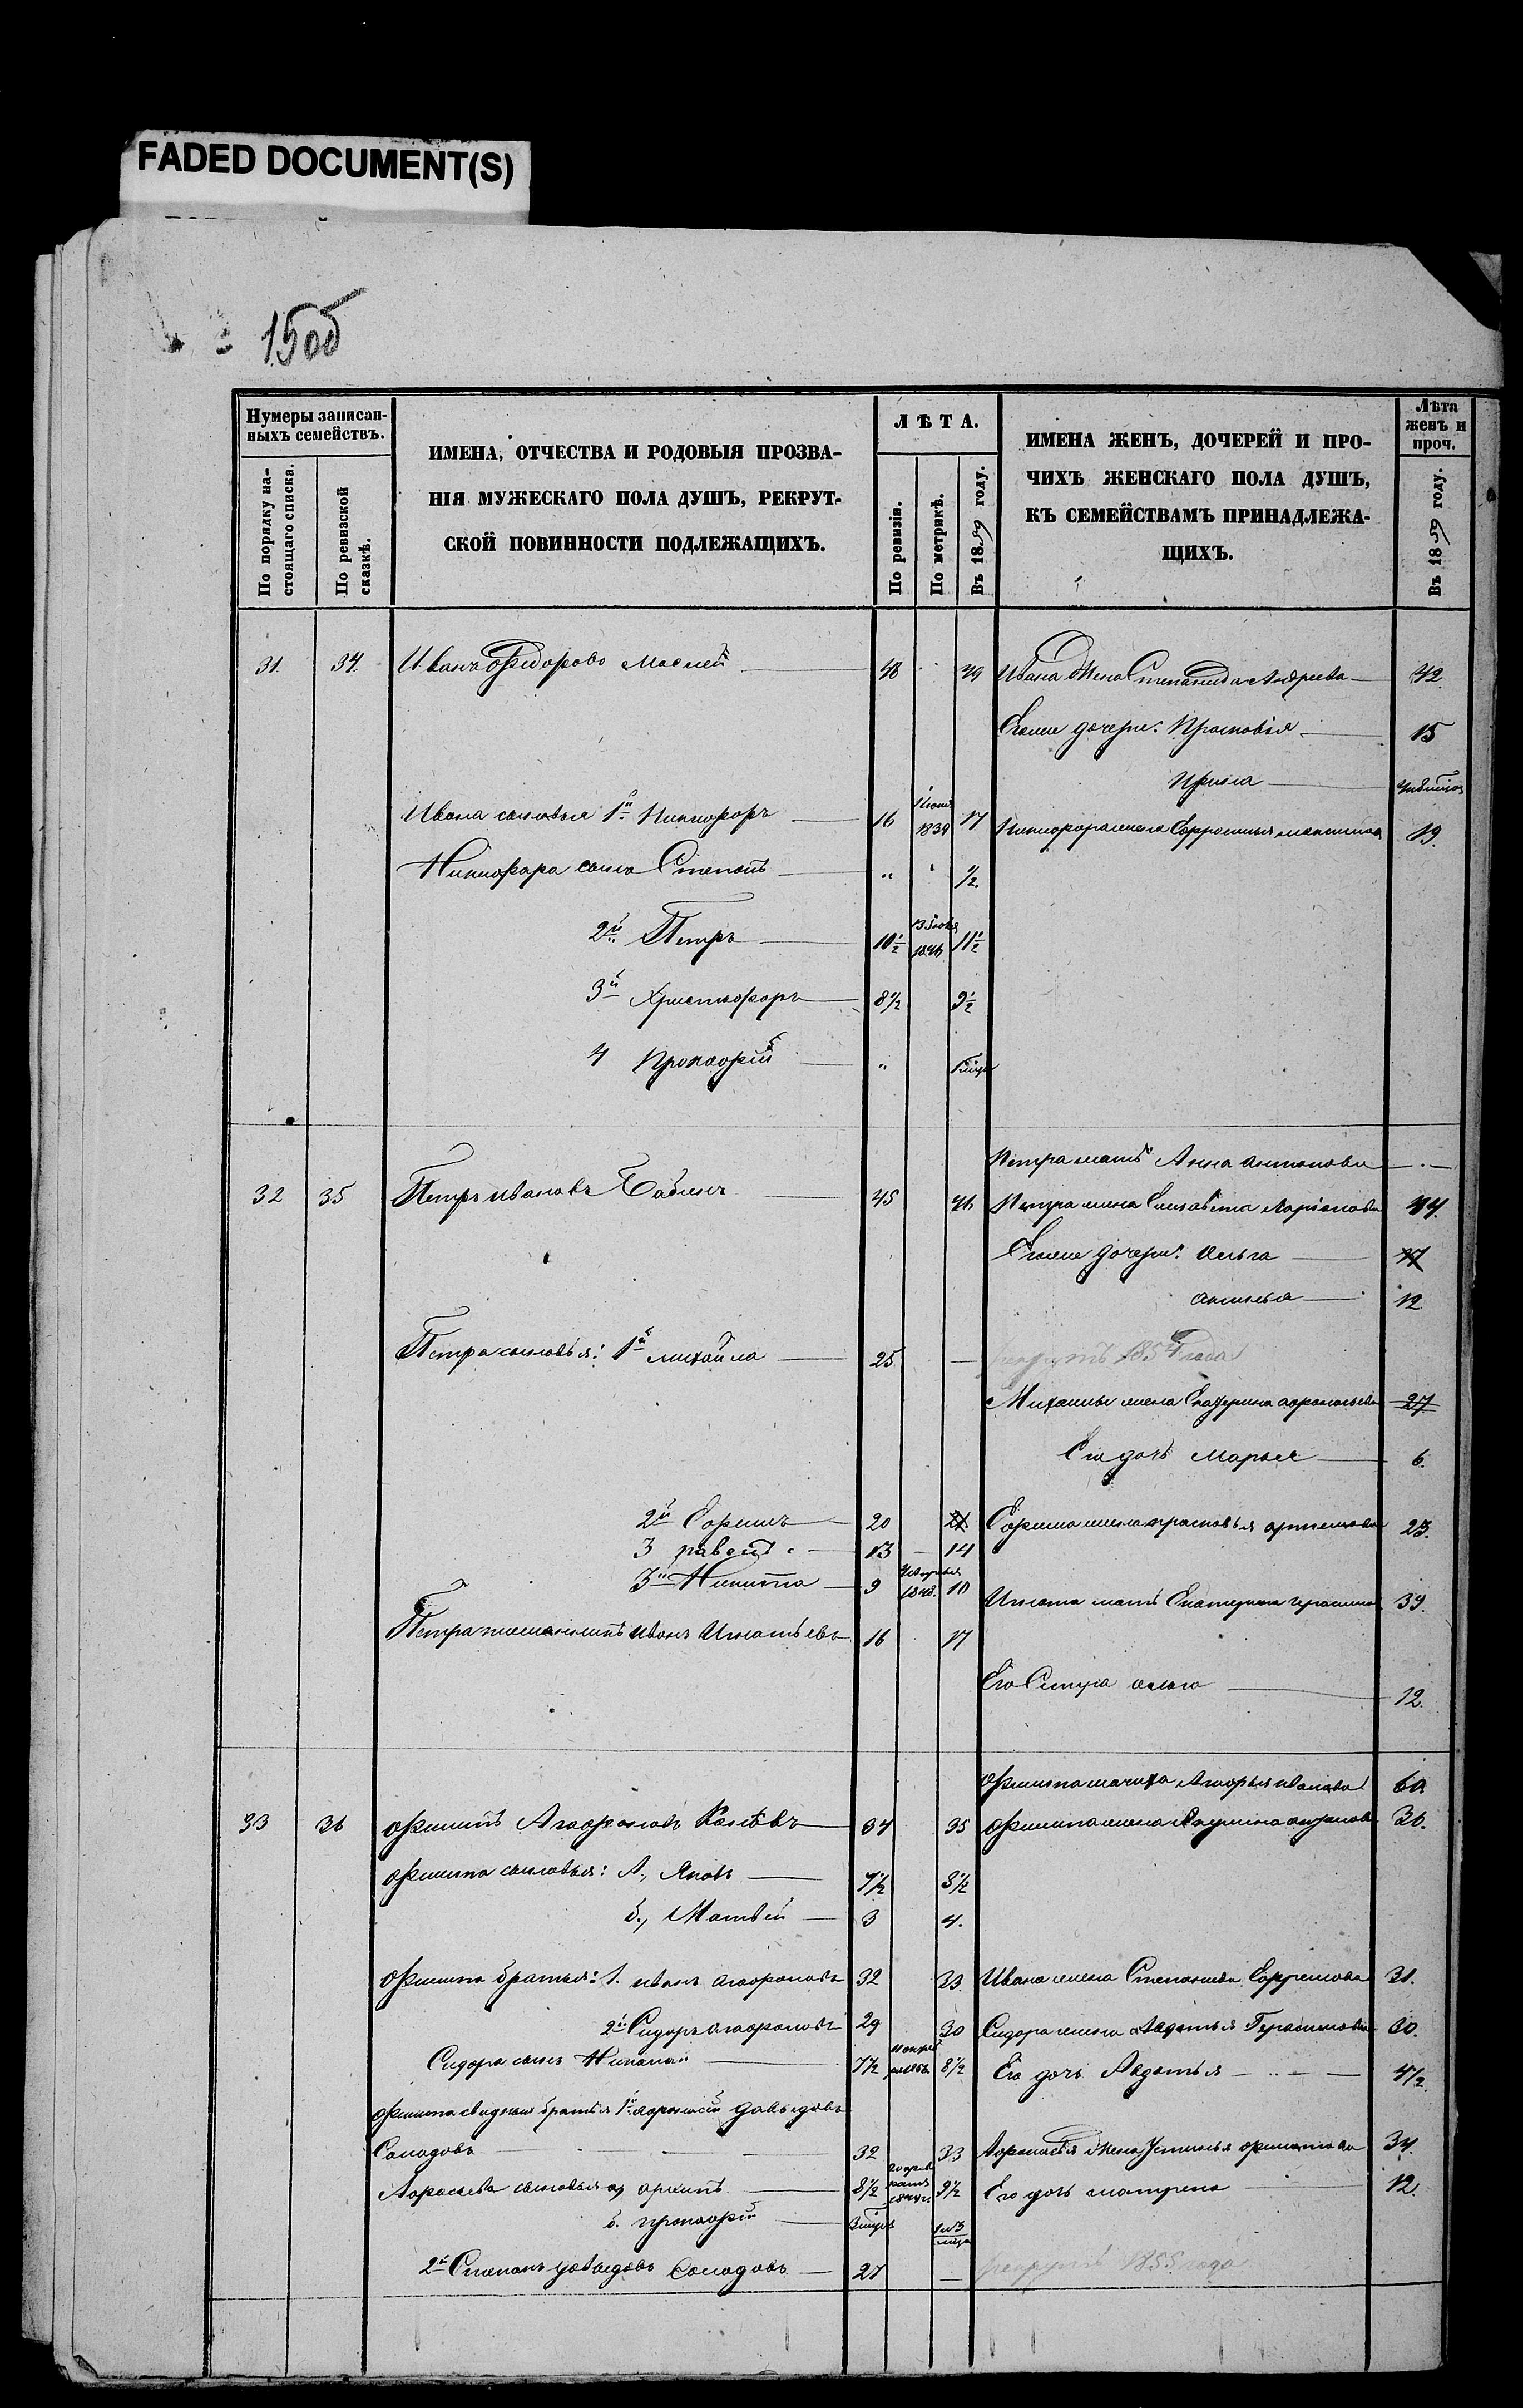 FADED DOCUMENT(S)
15об
Нумеры записан-
ныхъ семействъ.
По порядку на-
стоящаго списка.
По ревизской
сказкѣ.
ИМЕНА, ОТЧЕСТВА И РОДОВЫЯ ПРОЗВА-
НІЯ МУЖЕСКАГО ПОЛА ДУШЪ, РЕКРУТ-
СКОЙ ПОВИННОСТИ ПОДЛЕЖАЩИХЪ.
ЛѢТА.
По ревизіи.
По метрикѣ.
Въ 1859 году.
ИМЕНА ЖЕНЪ, ДОЧЕРЕЙ И ПРО-
ЧИХЪ ЖЕНСКАГО ПОЛА ДУШЪ,
КЪ СЕМЕЙСТВАМЪ ПРИНАДЛЕЖА-
ЩИХЪ.
Лѣта
женъ и
проч.
Въ 1859 году.
31. 34. Иванъ Ѳедоровъ 48 49 Ивана жена Степанида Андреева 42
дочери: Прасковія 15
Ирина
Ивана сыновья 1й Никифоръ 16 1839 17 Никифора жена 19.
Никифора сынъ Степанъ " 1/2.
2й Петръ 10 1/2 1846 11 1/2
3й Христофоръ 8 1/2 9 1/2
4 Прокофій "
Петра мать Анна Антонова
32 35 Петръ Ивановъ Бабинъ 45 46 Петра жена Елизавета Ларіонова 44.
дочери: Ольга 17
Акилина 12
Петра сыновья: 1й Михайла 25 — рекрутъ 1854 года
Михаилы жена Екатерина Афонасьева 27
Его дочь Марья 6.
2й Ефимъ 20 21 Ефима жена Прасковья 23.
3 14
3й Никита 9 1848. 10
Игната мать Екатерина 39.
Петра племянникъ Иванъ Игнатьевъ 16 17
Его Сестра Ольга 12.
Филипа мачиха Марья Иванова 60
33 36 Филипъ Агафоновъ 34 35 Филипа жена 36.
Филипа сыновья: А., Яковъ 7 1/2 8 1/2
б., Матвѣй 3 4.
Филипа братья: 1. Иванъ Агафоновъ 32 33. Ивана жена Степанида Ефремова 31.
2й Сидоръ Агафоновъ 29 30 Сидора жена Авдотья Герасимова 30.
Сидора сынъ Николай 7 1/2 8 1/2 Его дочь Авдотья 4 1/2
Филипа сводныя братья 1й Афонасій Давыдовъ
Солодовъ 32 33 Афонасья жена Устинья Филипова 34.
Афонасья сыновья а) Архипъ 8 1/2 9 1/2 Его дочь Матрена 12.
б. Прокофій
2й Степанъ Давыдовъ Солодовъ 27 — рекрутъ 1855 года